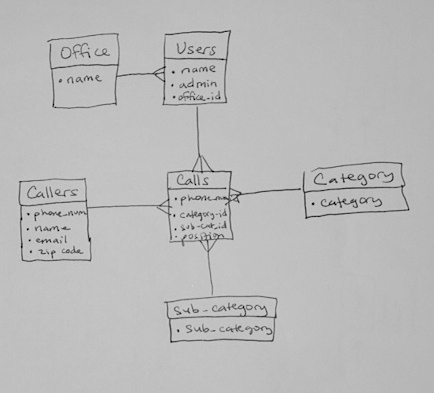 Office
• name
Users
• name
• admin
• office_id
Callers
• phone_num
• name
• email
• zip code
Calls
• category_id
• sub_cat_id
• position
Category
• category
sub_category
• sub_category